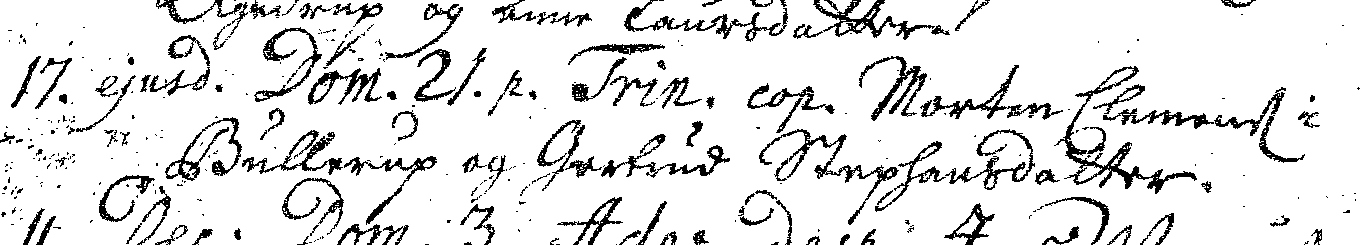 Agedrup og anne Laursdatter.
17. ejusd. Dom. 21. p. Trin. cop. Morten Clemens i
Bullerup og Gertrud Stephansdatter.
11 Dec. Dom. 3. Adv.